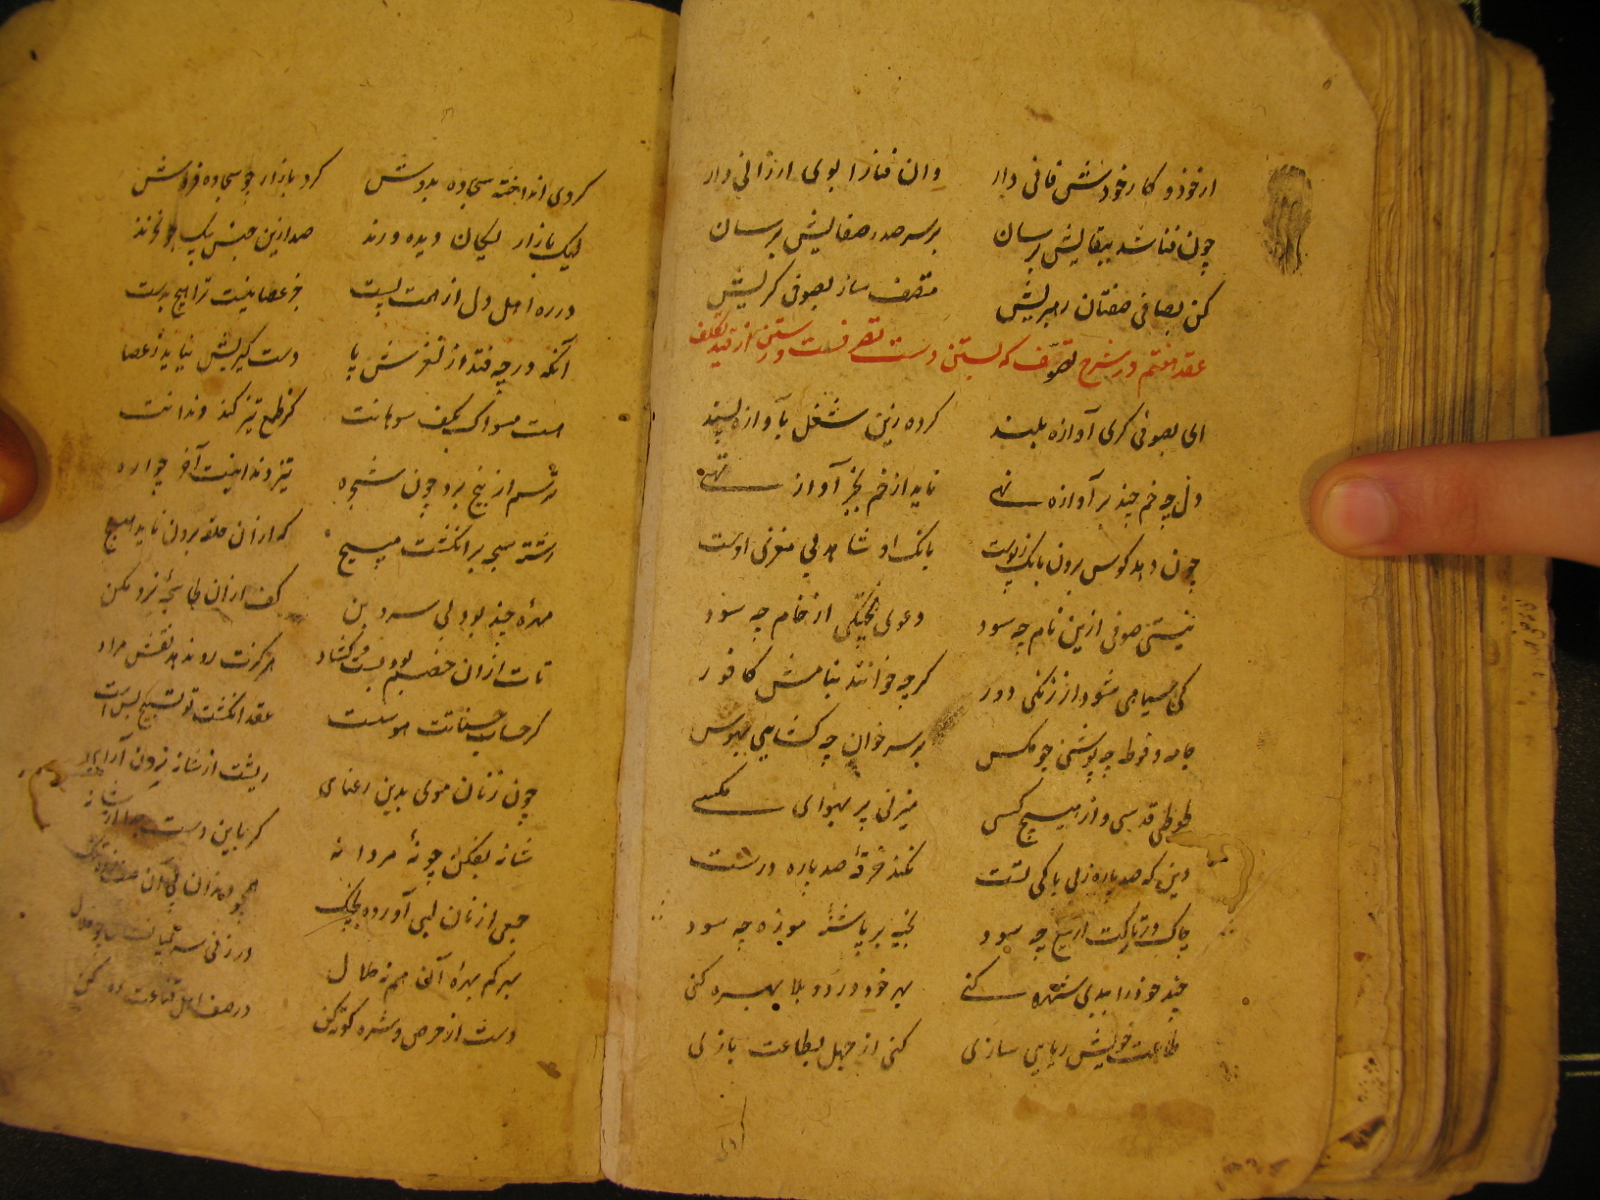 از خود و کار خودش فانی دار وان فنا را بوی ارزانی دار
چون فنا شد ببقایش برسان بر سر صدر صفایش برسان
کن بصافی صفتان رهبریش متصف ساز بصوفی گریش
عقد هفتم در شرح تصوف که بستن دست تصرفست و رستن از قید تکلف
ای بصوفی گری آوازه بلند کرده زین شغل بآوازه پسند
دل چو خم چند بر آوازه نهی ناید از خم بجز آواز تهی
چون دهد کوس برون بانگ ز پوست بانگ او شاهد بی مغزی اوست
نیستی صوفی ازین نام چه سود دعوی پختگی از خام چه سود
کی سیاهی شود از زنگی دور گرچه خوانند بنامش کافور
جامه و فوطه چه پوشی چو مگس بر سر خوان چه گشایی بهوس
طوطی قدسی و از هیچ کسی میزنی پر بهوای مگسی
دین که صد پاره ز بی باکی تست نکند خرقه صد پاره درست
چاک در پاکت از تیغ چه سود بخیه بر پاشنه موزه چه سود
چند خود را ببدی شهره کنی بهر خود دردِ بلا بهره کنی
طاعت خویش ریایی سازی کنی از جهل بطاعت بازی
کردی
کردی انداخته سجاده بدوش گرد بازار چو سجاده فروش
لیک بازار یکان دیده ورند صد ازین جنس بیک جو نخرند
در ره اهل دل از همت پست جز عصا نیست ترا هیچ بدست
آنکه در چه فتد از لغزش پا دستگیریش نیاید ز عصا
هست مسواک بکف سوهانت کز طمع تیز کند دندانت
شرم از بیخ برد چون شجره تیز دندانیت آخر چو اره
رشته سبحه بر انگشت مپیچ که ازان حلقه برون ناید هیچ
مهره چند بود بی سر و بن کف ازان طاسچه نرد مکن
تات ازان خصم بود بست و گشاد هرگزت رو ندهد نقش مراد
گر حساب حسناتت هوسست عقد انگشت تو تسبیح بس است
چون زنان موی بدین رعنایی ریشت از شانه فزون آرایی
شانه بفکن چو نهٔ مردانه گر باین دست
جمعی از نان لبی آورده بچنگ
بهر کم بهره آنی هم نه حلال
دست از حرص و شره کوته کن در صف اهل قناعت ره کن